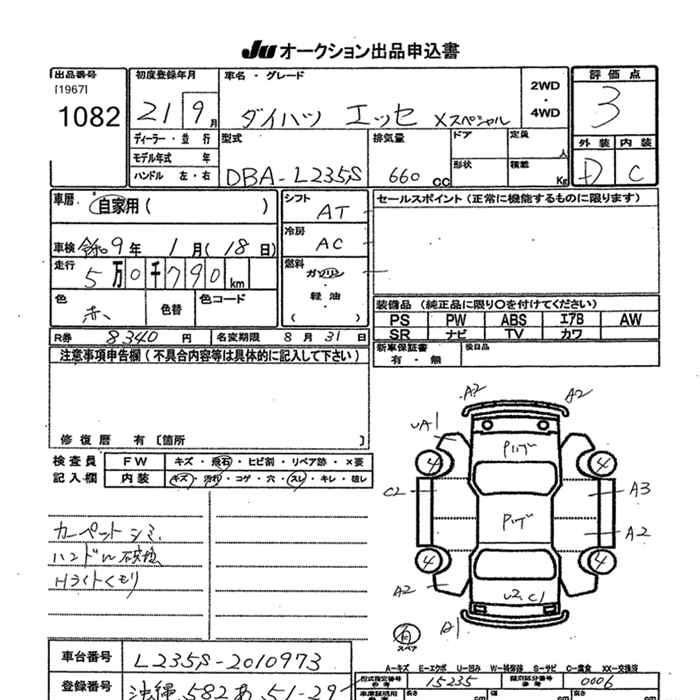 JU オークション出品申込書
出品番号
[1967]
1082
初度登録年月
21 9月
車名・グレード
ダイハツ エッセ Xスペシャル
2WD
・
4WD
評価点
3
外装 内装
D C
ディーラー・並行
モデル年式 年
ハンドル 左・右
型式
DBA-L235S
排気量
660 CC
ドア
定員
人
形状
積載
Kg
車歴
自家用( )
車検 令和9年 1月(18日)
走行
5万0千790km
色
赤
色替
色コード
シフト
AT
冷房
AC
燃料
ガソリン
・
軽油
( )
セールスポイント(正常に機能するものに限ります)
装備品(純正品に限り○を付けてください)
PS PW ABS エアB AW
SR ナビ TV カワ
R券 8340円 名変期限 8月31日
新車保証書
有・無
後日品
注意事項申告欄(不具合内容等は具体的に記入して下さい)
修復歴 有〔箇所 〕
検査員
記入欄
FW キズ・飛石・ヒビ割・リペア跡・×要
内装 キズ・汚れ・コゲ・穴・スレ・キレ・破レ
カーペットシミ
ハンドル
Hライトくもり
A2 A2
A1
Pハゲ
4 4
C2 A3
Pハゲ
A2
4 4
A2
C1
A1
スペア
A-キズ E-エクボ U-凹み W-補修跡 S-サビ C-腐食 XX-交換済
車台番号 L235S-2010973
型式指定番号
15235
類別区分番号
0006
登録番号 582あ51-29
長さ cm
幅 cm
高さ cm